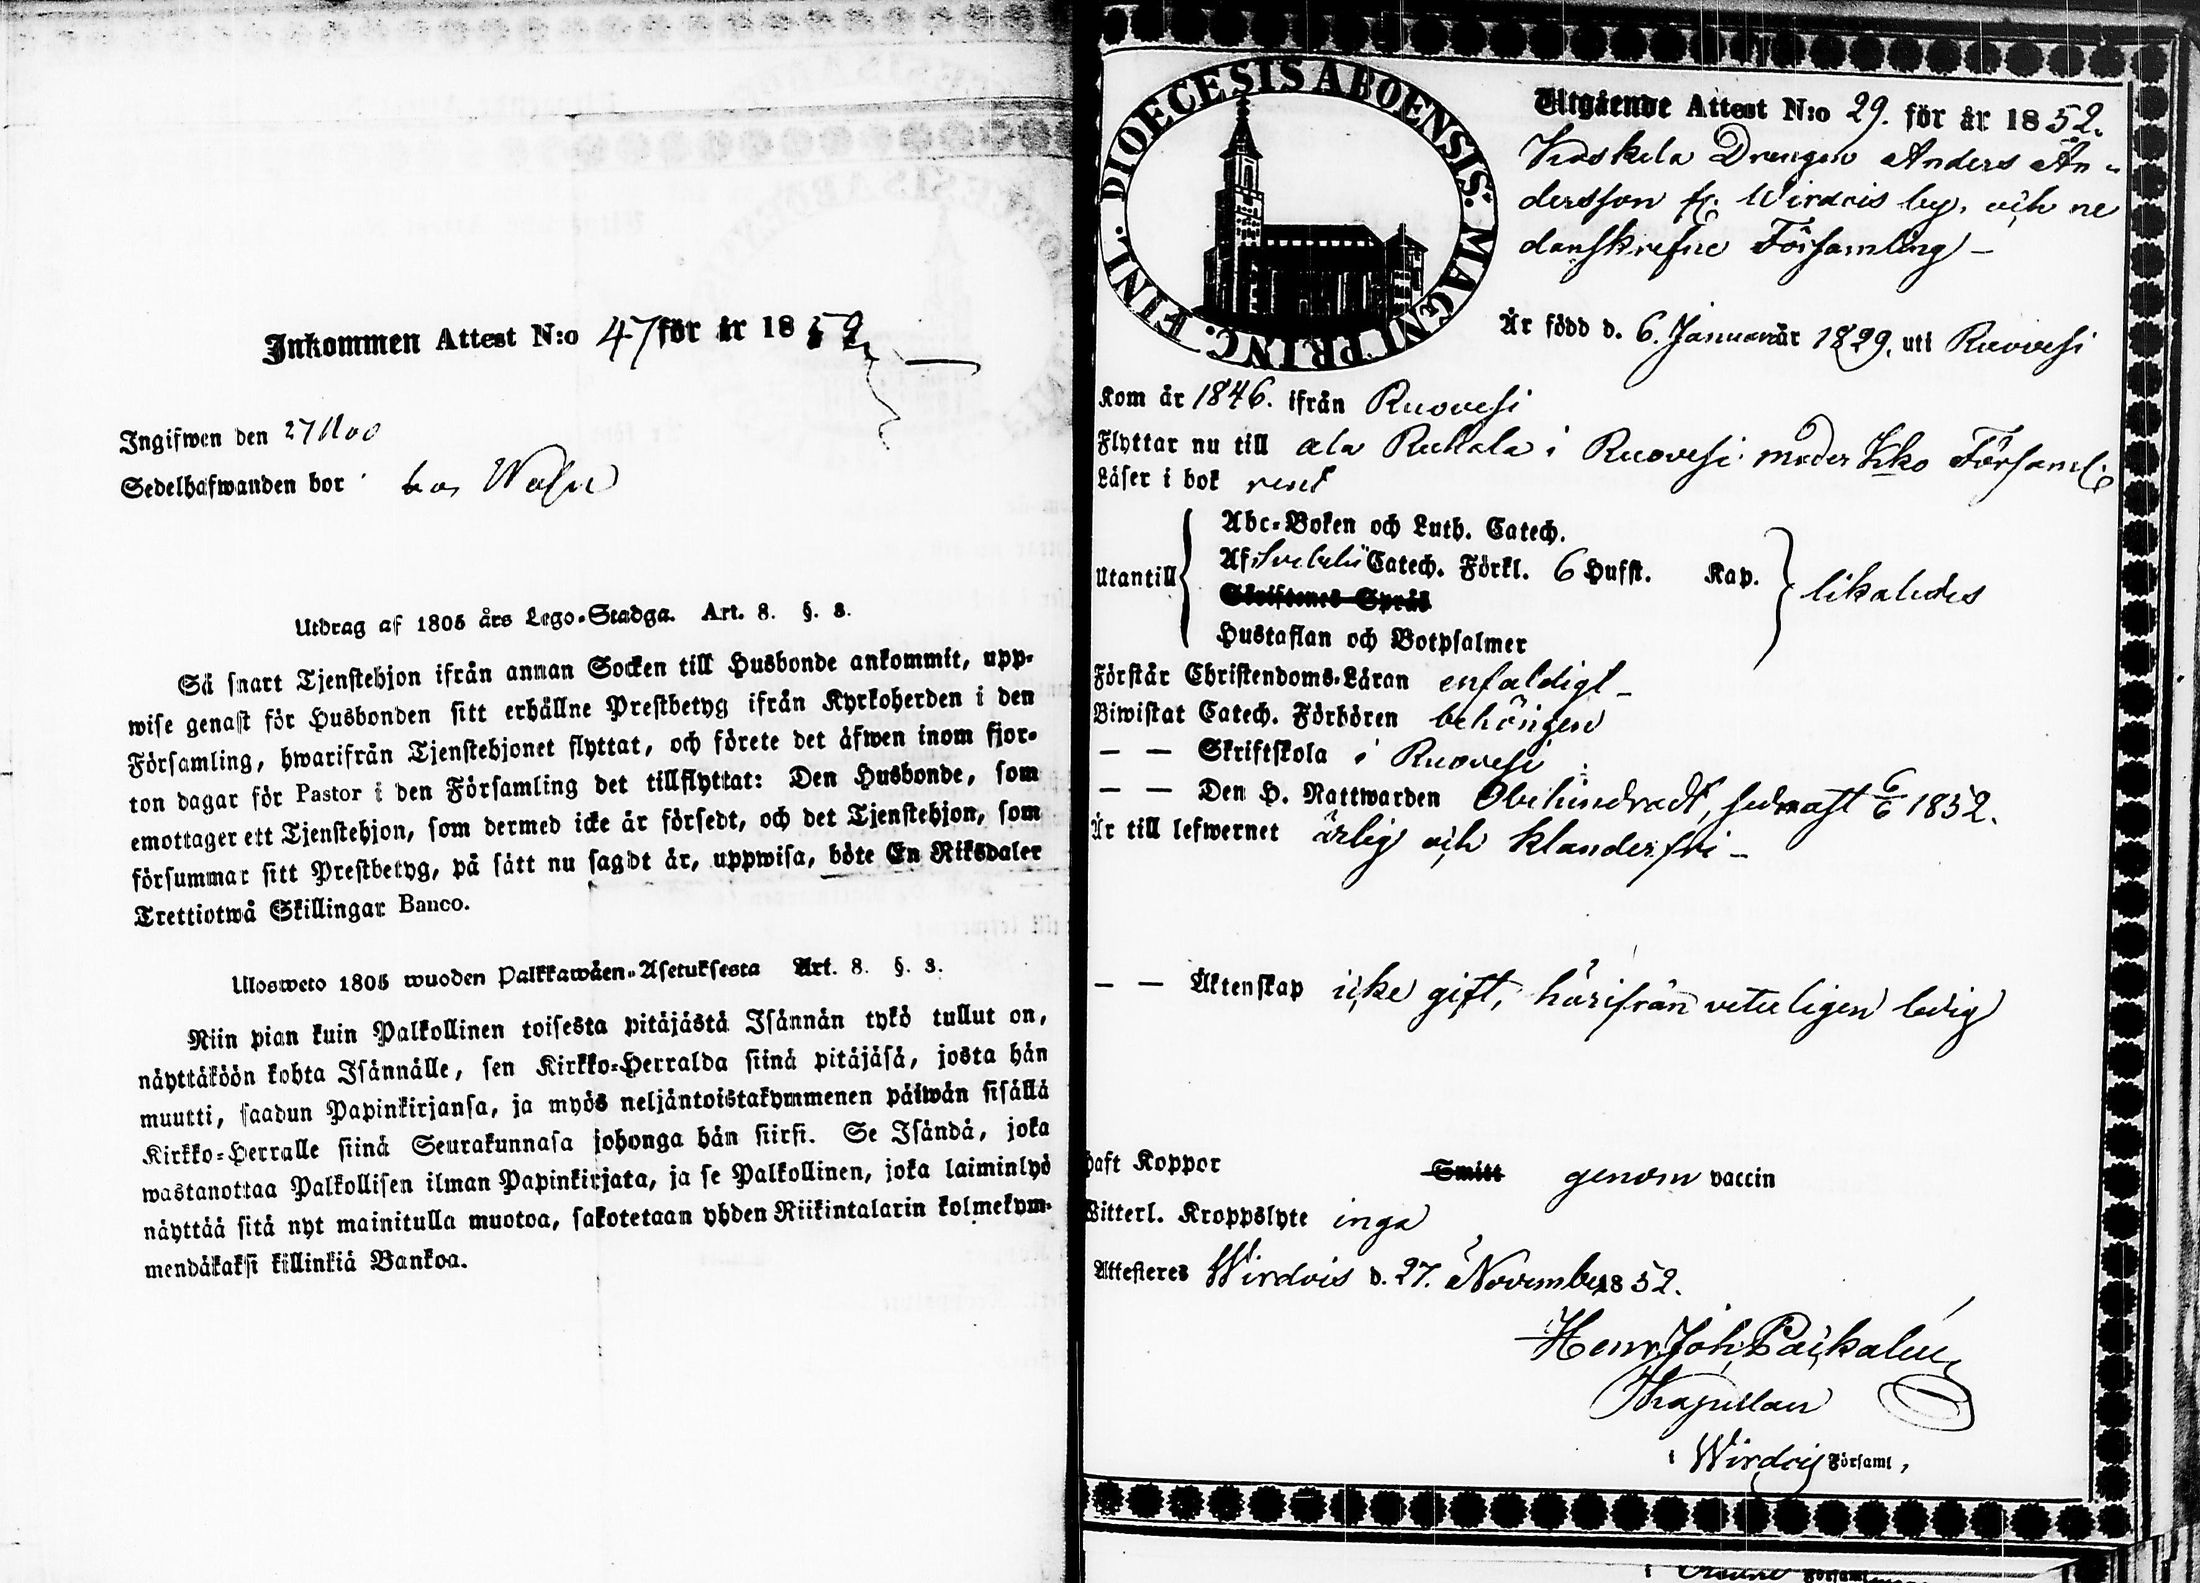 Inkommen Attest N:o 47 för år 1852
Ingifwen den 27 Nov
Sedelhafwanden bor hos
Utdrag af 1805 års Lego-Stadga. Art. 8. §. 3.
Så snart Tjenstehjon ifrån annan Socken till Husbonde ankommit, upp-
wise genast för Husbonden sitt erhållne Prestbetyg ifrån Kyrkoherden i den
Församling, hwarifrån Tjenstehjonet flyttat, och förete det äfwen inom fjor-
ton dagar för Pastor i den Församling det tillflyttat: Den Husbonde, som
emottager ett Tjenstehjon, som dermed icke är försedt, och det Tjenstehjon, som
försummar sitt Prestbetyg, på sätt nu sagdt är, uppwisa, böte En Riksdaler
Trettiotwå Skillingar Banco.
Ulosweto 1805 wuoden Palkkawäen-Asetuksesta Art. 8. §. 3.
Niin pian kuin Palkollinen toisesta pitäjästä Isännän tykö tullut on,
näyttäköön kohta Isännälle, sen Kirkko-Herralda siinä pitäjäsä, josta hän
muutti, saadun Papinkirjansa, ja myös neljäntoistakymmenen päiwän sisällä
Kirkko-Herralle siinä Seurakunnasa johonga hän siirsi. Se Isändä, joka
wastanottaa Palkollisen ilman Papinkirjata, ja se Palkollinen, joka laiminlyö
näyttää sitä nyt mainitulla muotoa, sakotetaan yhden Riikintalarin kolmekym-
mendäkaksi killinkiä Bankoa.
DIOECESIS ABOENSIS. MAGNI PRINC. FINL.
Utgående Attest N:o 29. för år 1852.
Koskela Drengen Anders An-
dersson fr. Wirdois by, och ne
danskrefne Församling –
Är född d. 6. Januarii år 1829, uti Ruovesi
Kom år 1846. ifrån Ruovesi
Flyttar nu till ala Ruhala i Ruovesi moder Kko Församl.
Läser i bok rent
Utantill
Abc-Boken och Luth. Catech.
Af Svebelii Catech. Förkl. 6 Hufst. Kap.
Skriftenes Språk
Hustaflan och Botpsalmer
likaledes
Förstår Christendoms-Läran enfaldigt –
Biwistat Catech. Förhören behörigen
— — Skriftskola i Ruovesi
— — Den H. Nattwarden Obehindradt, sednast 6/6 1852.
Är till lefwernet ärlig och klanderfri –
— — Äktenskap icke gift, härifrån veterligen ledig
Haft Koppor Smitt genom vaccin
Witterl. Kroppslyte inga
Attesteres Wirdois d. 27. November 1852.
Henr. Joh.
Kapellan
i Wirdois Församl,